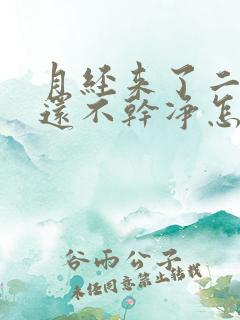 月经来了二
還不幹净怎
谷雨公子
未经同意禁止转载